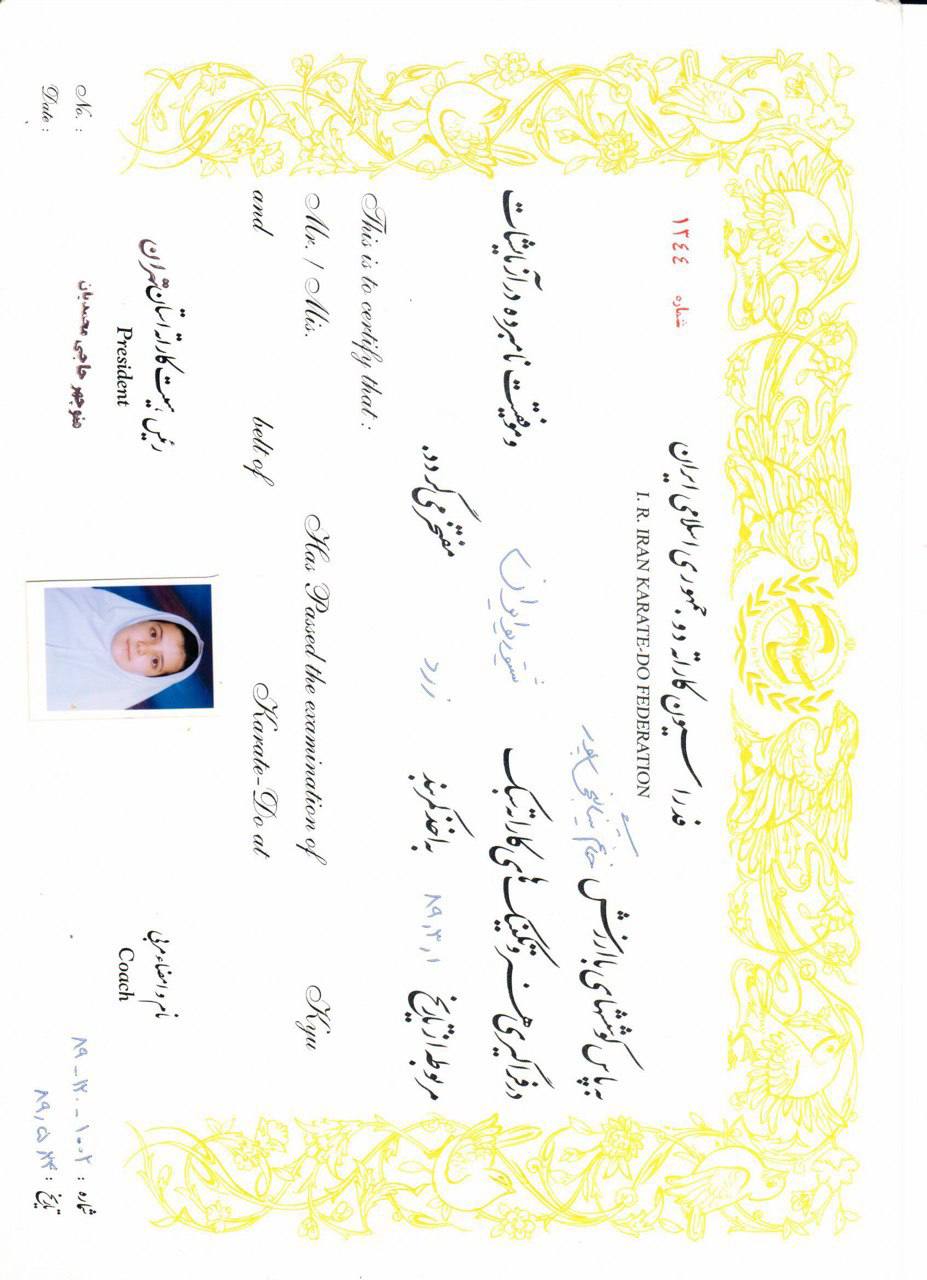 فدراسیون کاراته دو جمهوری اسلامی ایران
شماره ۱۳٤٤
I. R. IRAN KARATE-DO FEDERATION
به پاس کوششهای با ارزش خانم
در فراگیری هنر و تکنیک های کاراته سبک شیتوریو ایران و موفقیت نامبرده در آزمایشات
مربوطه از تاریخ ۸۹,۳,۱ به اخذ کمربند زرد مفتخر می گردد.
This is to certify that :
Mr. / Mis. Has Passed the examination of Kyu
and belt of Karate-Do at
رئیس هیئت کاراته استان تهران
President
منوچهر حاجی محمدیان
نام و امضاء مربی
Coach
No. :
Date :
شماره : ۸۹-۱۲۰-۱۰۰۲
تاریخ : ۸۹,۵,۲۴